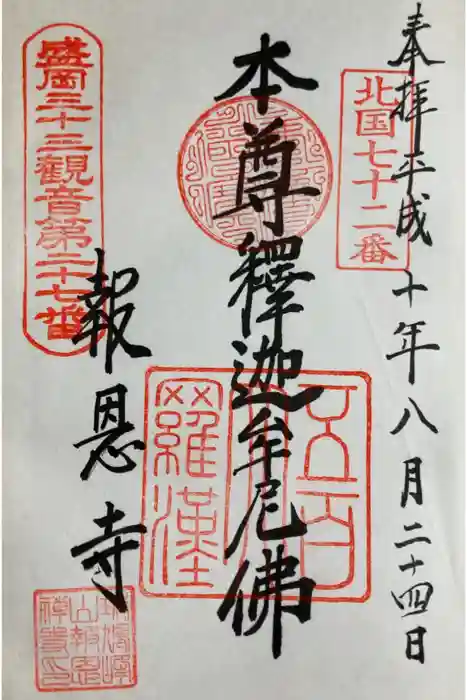 奉拝 平成十年八月二十四日
北国七十二番
本尊釋迦牟尼佛
五百羅漢
盛岡三十三観音第二十七番
報恩寺